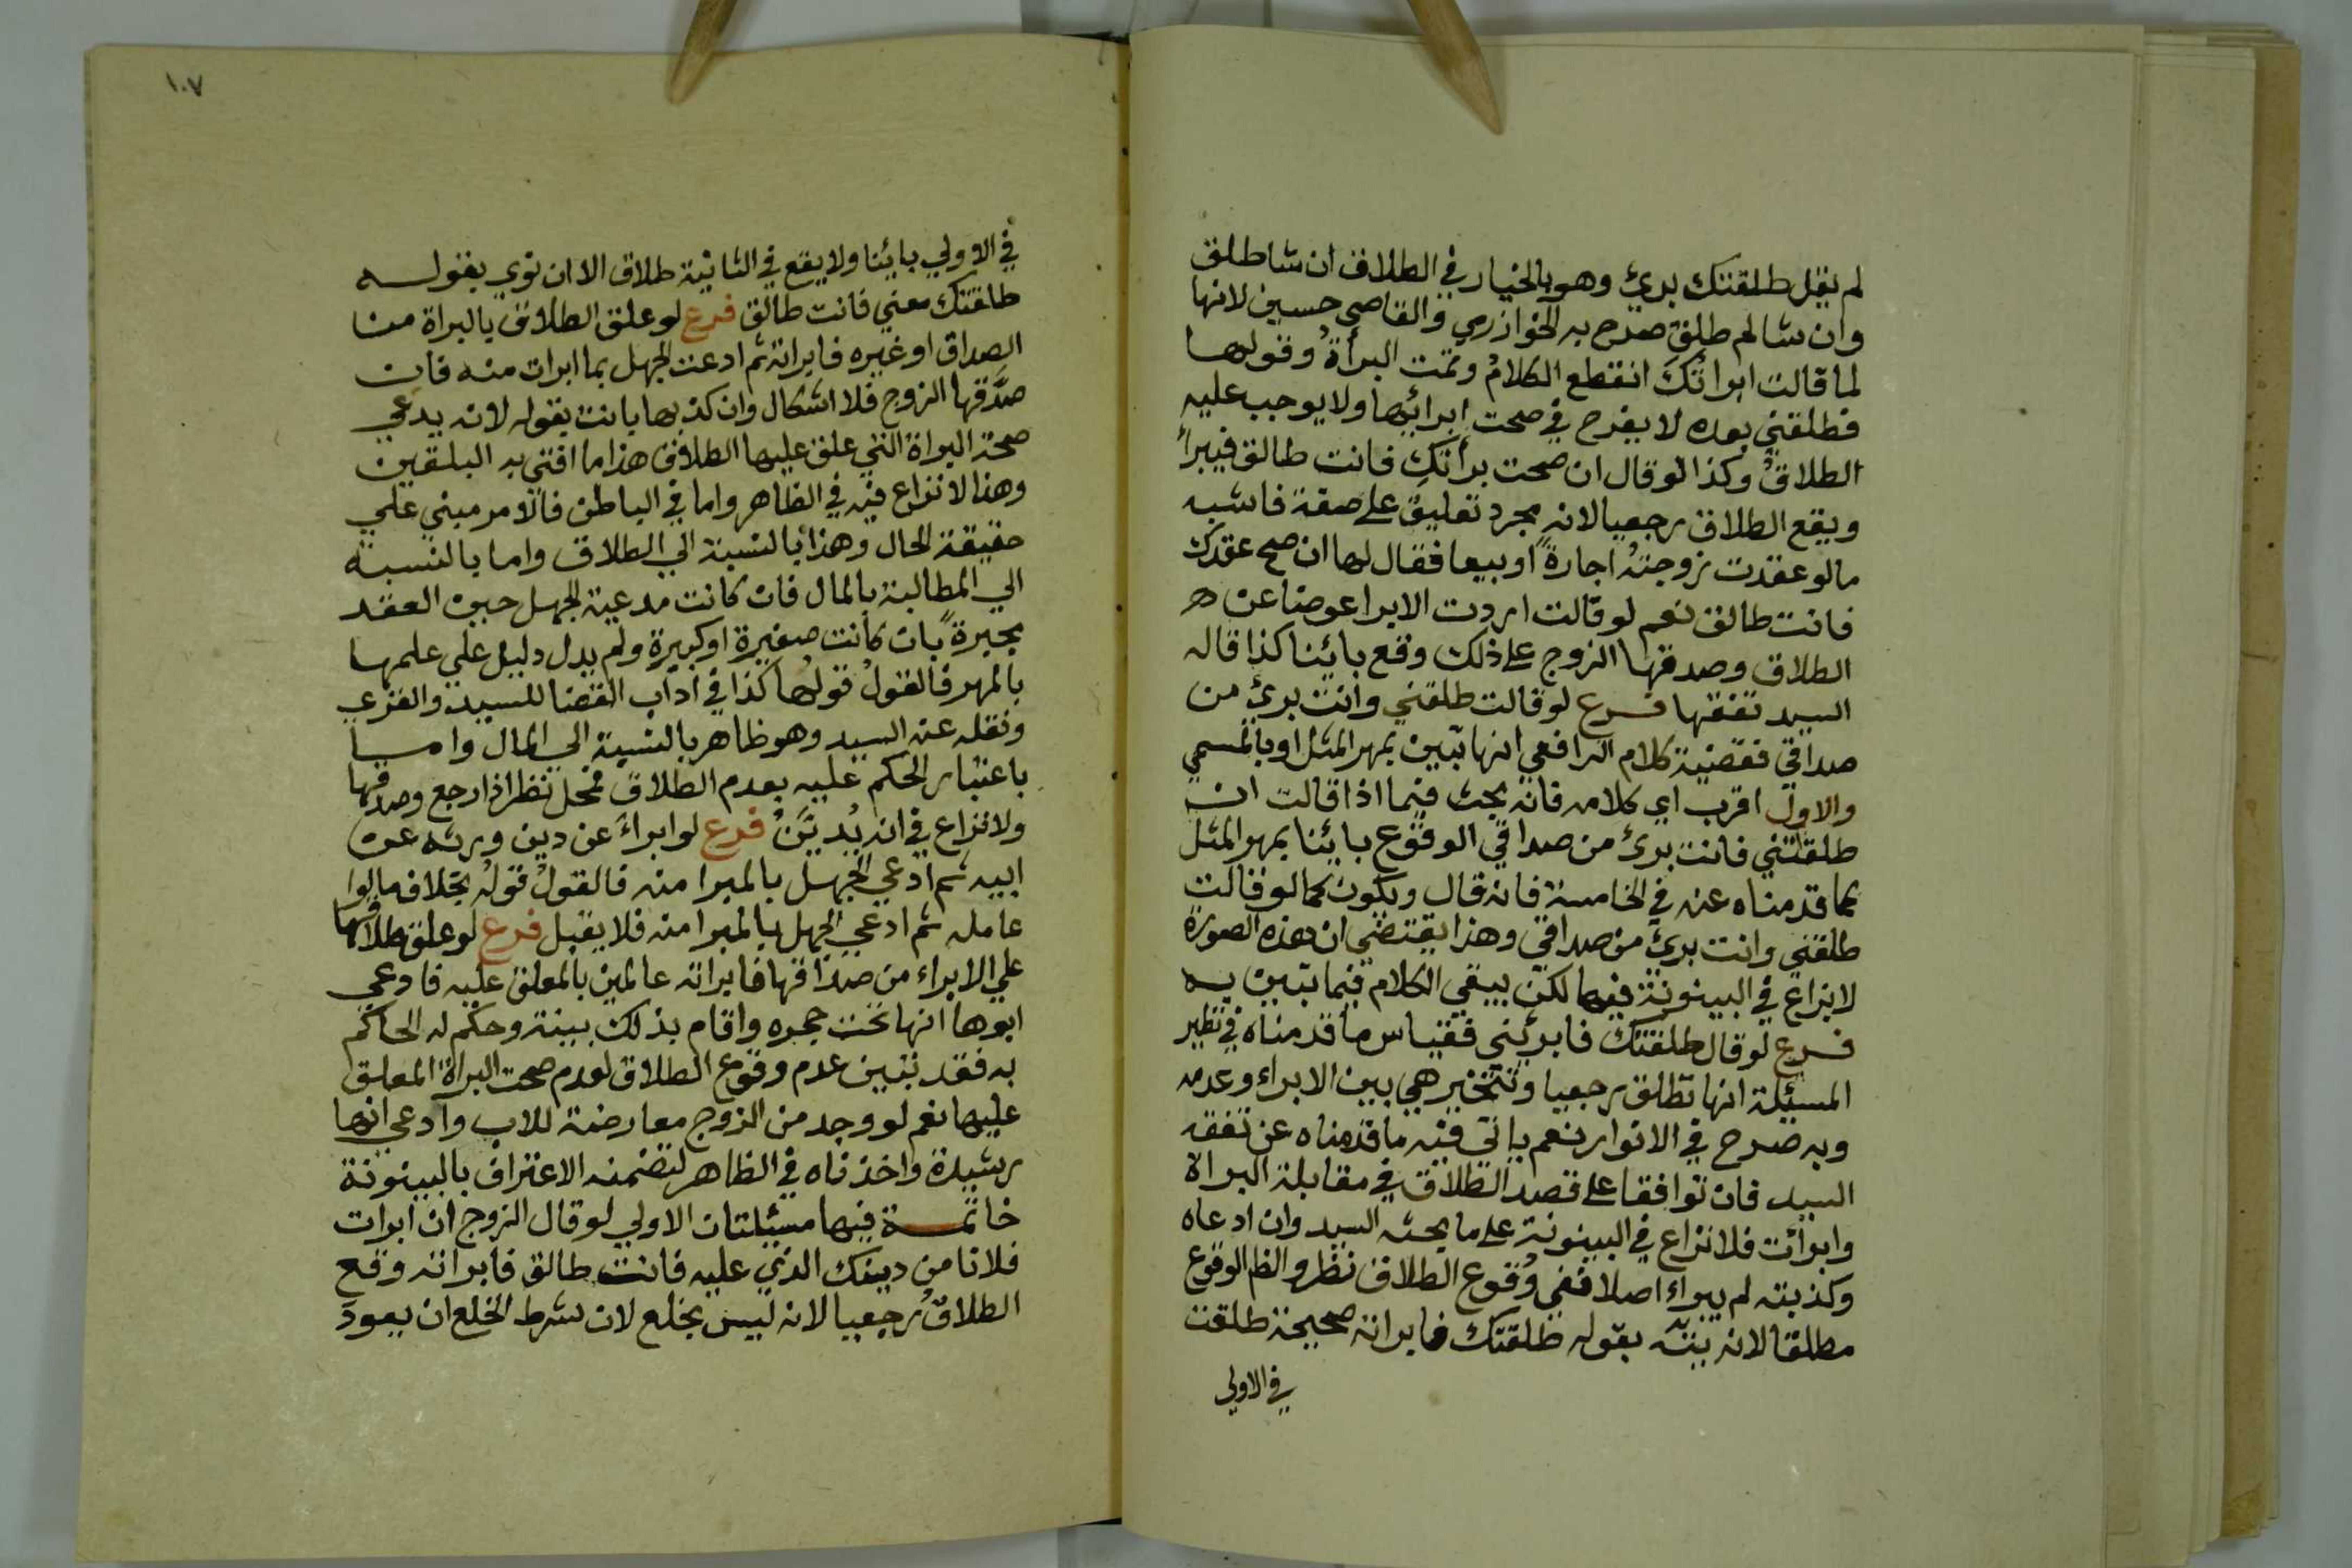 لم يقل طلقتك برئ وهو بالخيار في الطلاق ان شا طلق
وان شا لم طلق صرح به الخوازرمي والقاضي حسين لانها
لما قالت ابراتُكَ انقطع الكلامُ وتمت البرأةُ وقولها
فطلقني بعده لا يقدح في صحت ابرائها ولا يوجب عليه
الطلاقُ وكذا لو قال ان صحت برأتكِ فانت طالق فيبرأ
ويقع الطلاق رجعيا لانه مجرد تعليق على صفة فاشبه
ما لو عقدت زوجتهُ اجارةً او بيعا فقال لها ان صح عقدك
فانت طالق نعم لو قالت اردت الابرا عوضا عن
الطلاق وصدقها الزوج على ذلك وقع بائنا كذا قاله
السيد تفقها فرع لو قالت طلقني وانت برئ من
صداقي فقضية كلام الرافعي انها تبين بمهر المثل او بالمسمي
والاول اقرب اي كلامه فانه بحث فيما اذا قالت ان
طلقتني فانت برئ من صداقي الوقوع بائنا بمهر المثل
كما قدمناه عنه في الخامسة فانه قال ويكون كما لو قالت
طلقني وانت برئ من صداقي وهذا يقتضي ان هذه الصورة
لا نزاع في البينونة فيها لكن يبقي الكلام فيما تبين به
فرع لو قال طلقتك فابرئني فقياس ما قدمناه في نظير
المسئلة انها تطلق رجعيا وتتخير هي بين الابراء وعدمه
وبه صرح في الانوار نعم ياتي فيه ما قدمناه عن تفقه
السيد فان توافقا على قصد الطلاق في مقابلة البراة
وابرأت فلا نزاع في البينونة على ما بحثه السيد وان ادعاه
وكذبته لم يبراء اصلا ففي وقوع الطلاق نظر والظم الوقوع
مطلقا لانه بتّه بقوله طلقتك فابراته صحيحة طلقت
في الاولي
١٠٧
في الاولي بائنا ولا يقع في الثانية طلاق الا ان نوي بقوله
طلقتك معني فانت طالق فرع لو علق الطلاق بالبراة من
الصداق او غيره فابراته ثم ادعت الجهل بما ابرات منه فان
صدَّقها الزوج فلا اشكال وان كذبها بانت بقوله لانه يدعي
صحة البراة التي علق عليها الطلاق هذا ما افتي به البلقين
وهذا لا نزاع فيه في الظاهر واما في الباطن فالامر مبني علي
حقيقة الحال وهذا بالنسبة الي الطلاق واما بالنسبة
الي المطالبة بالمال فان كانت مدعية الجهل حين العقد
مجبرةً بان كانت صغيرة او كبيرة ولم يدل دليل علي علمها
بالمهر فالقولُ قولها كذا في اداب القضا للسيد والغزي
ونقله عن السيد وهو ظاهر بالنسبة الي المال واما
باعتبار الحكم عليه بعدم الطلاق فمحل نظر اذا رجع وصدقها
ولا نزاع في انه يُديَّنُ فرع لو ابراءَ عن دين ورثه عن
ابيه ثم ادعي الجهل بالمبرا منه فالقولُ قولُه بخلاف ما لوا
عامله ثم ادعي الجهل بالمبرا منه فلا يقبل فرع لو علق طلاقها
علي الابراء من صداقها فابراته عالمين بالمعلق عليه فادعي
ابوها انها تحت حجره واقام بذلك بينة وحكم له الحاكم
به فقد تبين عدم وقوع الطلاق لعدم صحت البراة المعلق
عليها نعم لو وجد من الزوج معارضة للاب وادعي انها
رشيدة واخذناه في الظاهر لتضمنه الاعتراف بالبينونة
خاتمة فيها مسئلتان الاولي لو قال الزوج ان ابرات
فلانا من دينك الذي عليه فانت طالق فابراته وقع
الطلاقُ رجعيا لانه ليس بخلع لان شرط الخلع ان يعود